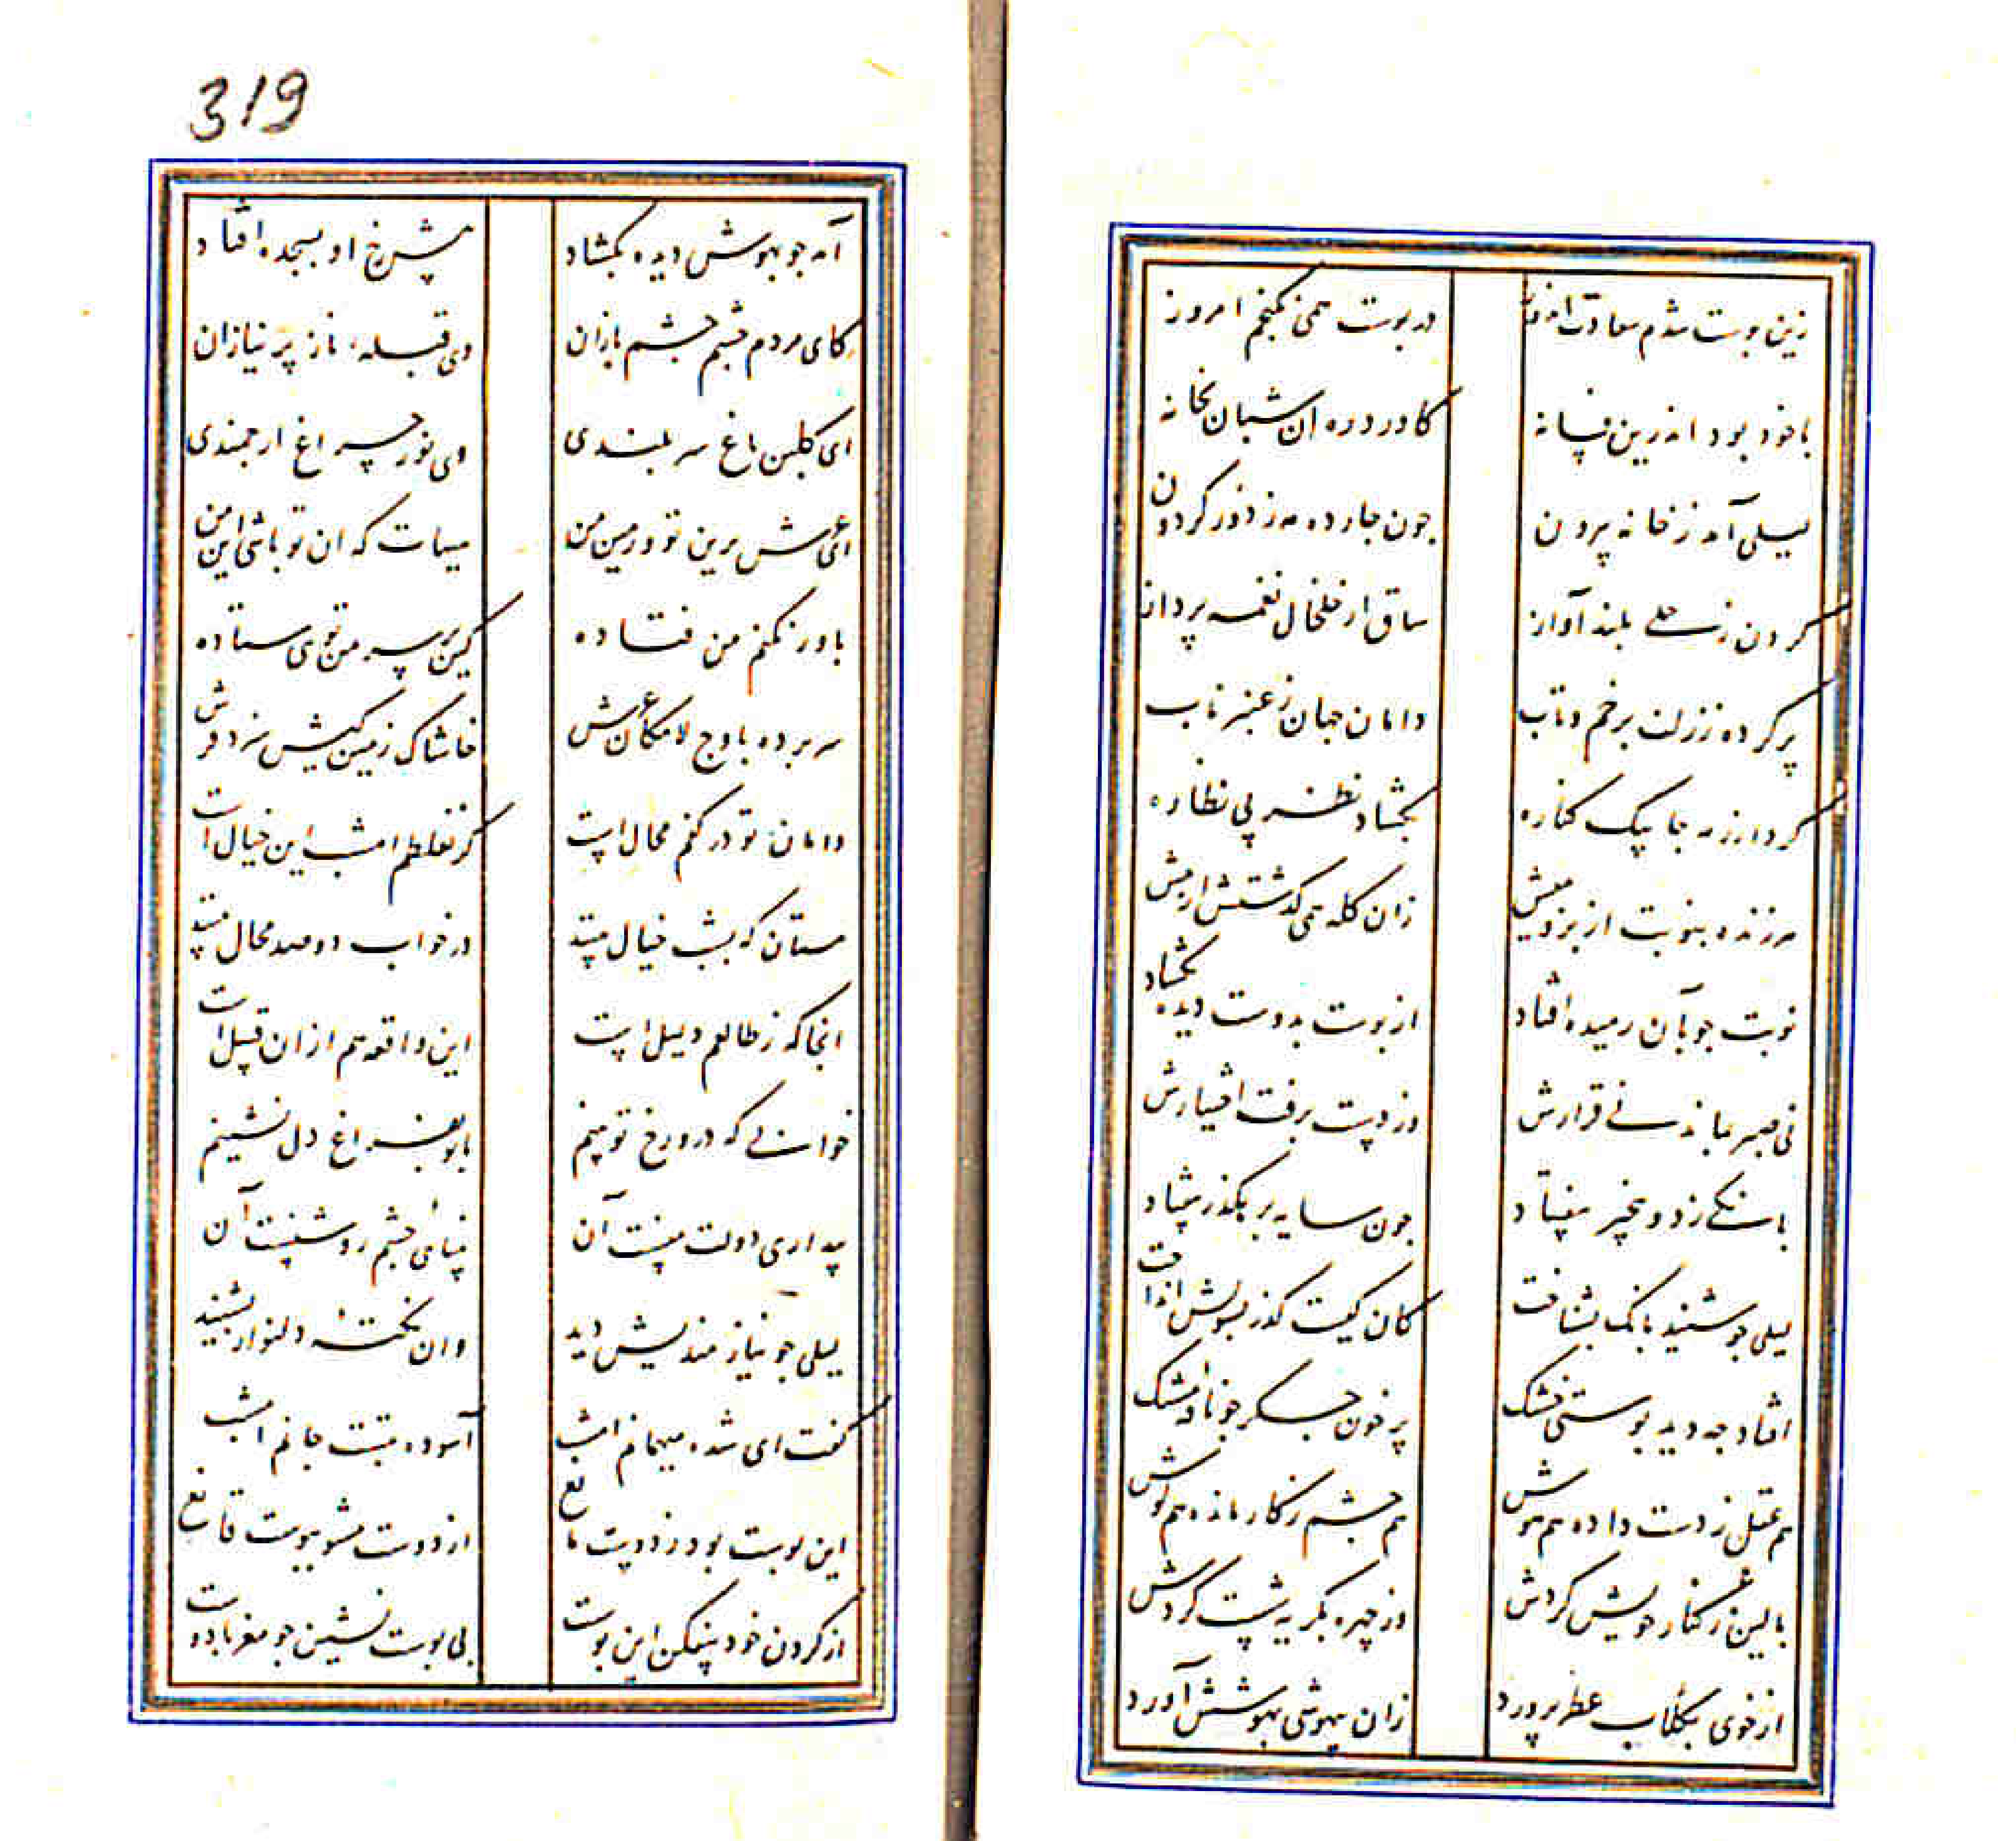 زین پوست شدم سعادت اندوز در پوست همی نکنجم امروز
با خود بود اندرین فسانه کاورد ره ان شبان بخانه
لیلی آمد ز خانه بیرون جون جارده مه ز دور کردون
کردن ز حلی بلند آواز ساق از خلخال نغمه پرداز
پر کرده ز زلف پر خم و تاب دامان جهان ز عنبر ناب
کرد از رمه جا بیک کناره بکشاد نظر پی نظاره
هر زنده بنوبت از بز و میش زان کله همی کذشتش از پیش
نوبت جو بآن رمیده افتاد از پوست بدوست دیده بکشاد
نی صبر بماند نی قرارش وز دست برفت اختیارش
بانکی زد و بیخبر بیفتاد جون سایه بر هکذر بیفتاد
لیلی جو شنید بانک بشتافت کان کیست کذر بسویش انداخت
افتاده جه دید پوستی خشک پر خون جکر جو نافه مشک
هم عقل ز دست داده هم هوش هم جشم ز کار مانده هم کوش
بالین ز کنار خویش کردش وز جهره بکریه شست کردش
از خوی بکلاب عطر پرورد زان بیهوشی بهوشش آورد
319
آمد جو بهوش دیده بکشاد پیش رخ او بسجده افتاد
کای مردم جشم جشم بازان وی قبلهٔ ناز بی نیازان
ای کلبن باغ سربلندی وی نور جراغ ارجمندی
ای عرش برین تو و زمین من هیهات که ان تو باشی این من
باور نکنم من فتاده کین بر سر من توی ستاده
سر برده باوج لامکان عرش خاشاک زمین کیش سزد فرش
دامان تو در کفم محال است کر نه غلطم امشب این خیال است
مستان که بشب خیال بینند در خواب دو صد محال بینند
انجا که ز طالعم دلیل است این واقعه هم ازان قبیل است
خوابی که درو رخ تو بینم با تو بفراغ دل نشینم
بیداری دولت منست آن بینائی جشم روشنست آن
لیلی جو نیازمندیش دید وان نکتهٔ دلنواز بشنید
کفت ای شده میهمانم امشب آسوده بتست جانم امشب
این پوست بود ز دوست مانع از دوست مشو بپوست قانع
از کردن خود بیفکن این پوست بی پوست نشین جو مغز با دوست